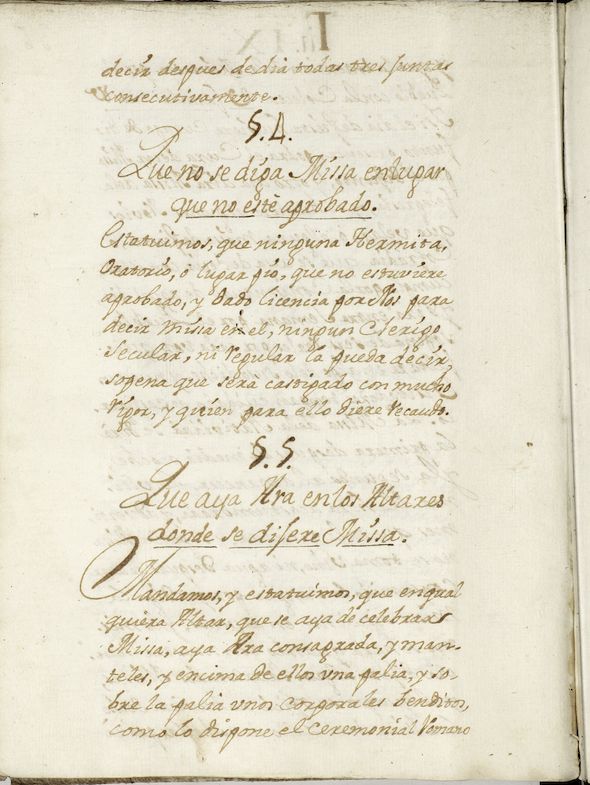 decir despues de dia todas tres juntas
consecutivamente.
§. 4.
Que no se diga Missa en lugar
que no estè aprobado.
Estatuimos, que ninguna Hermita,
Oratorio, o lugar pio, que no estuviere
aprobado, y dado licencia por Nos para
decir missa en el, ningun Clerigo
Secular, ni Regular la pueda decir,
sopena que serà castigado con mucho
Rigor, y quien para ello diere recaudo.
§. 5.
Que aya Ara en los Altares
donde se dijere Missa.
Mandamos, y estatuimos, que en qual
quiera Altar, que se aya de celebrar
Missa, aya Ara consagrada, y man-
teles, y encima de ellos vna palia, y so-
bre la palia vnos corporales benditos,
como lo dispone el Ceremonial Romano